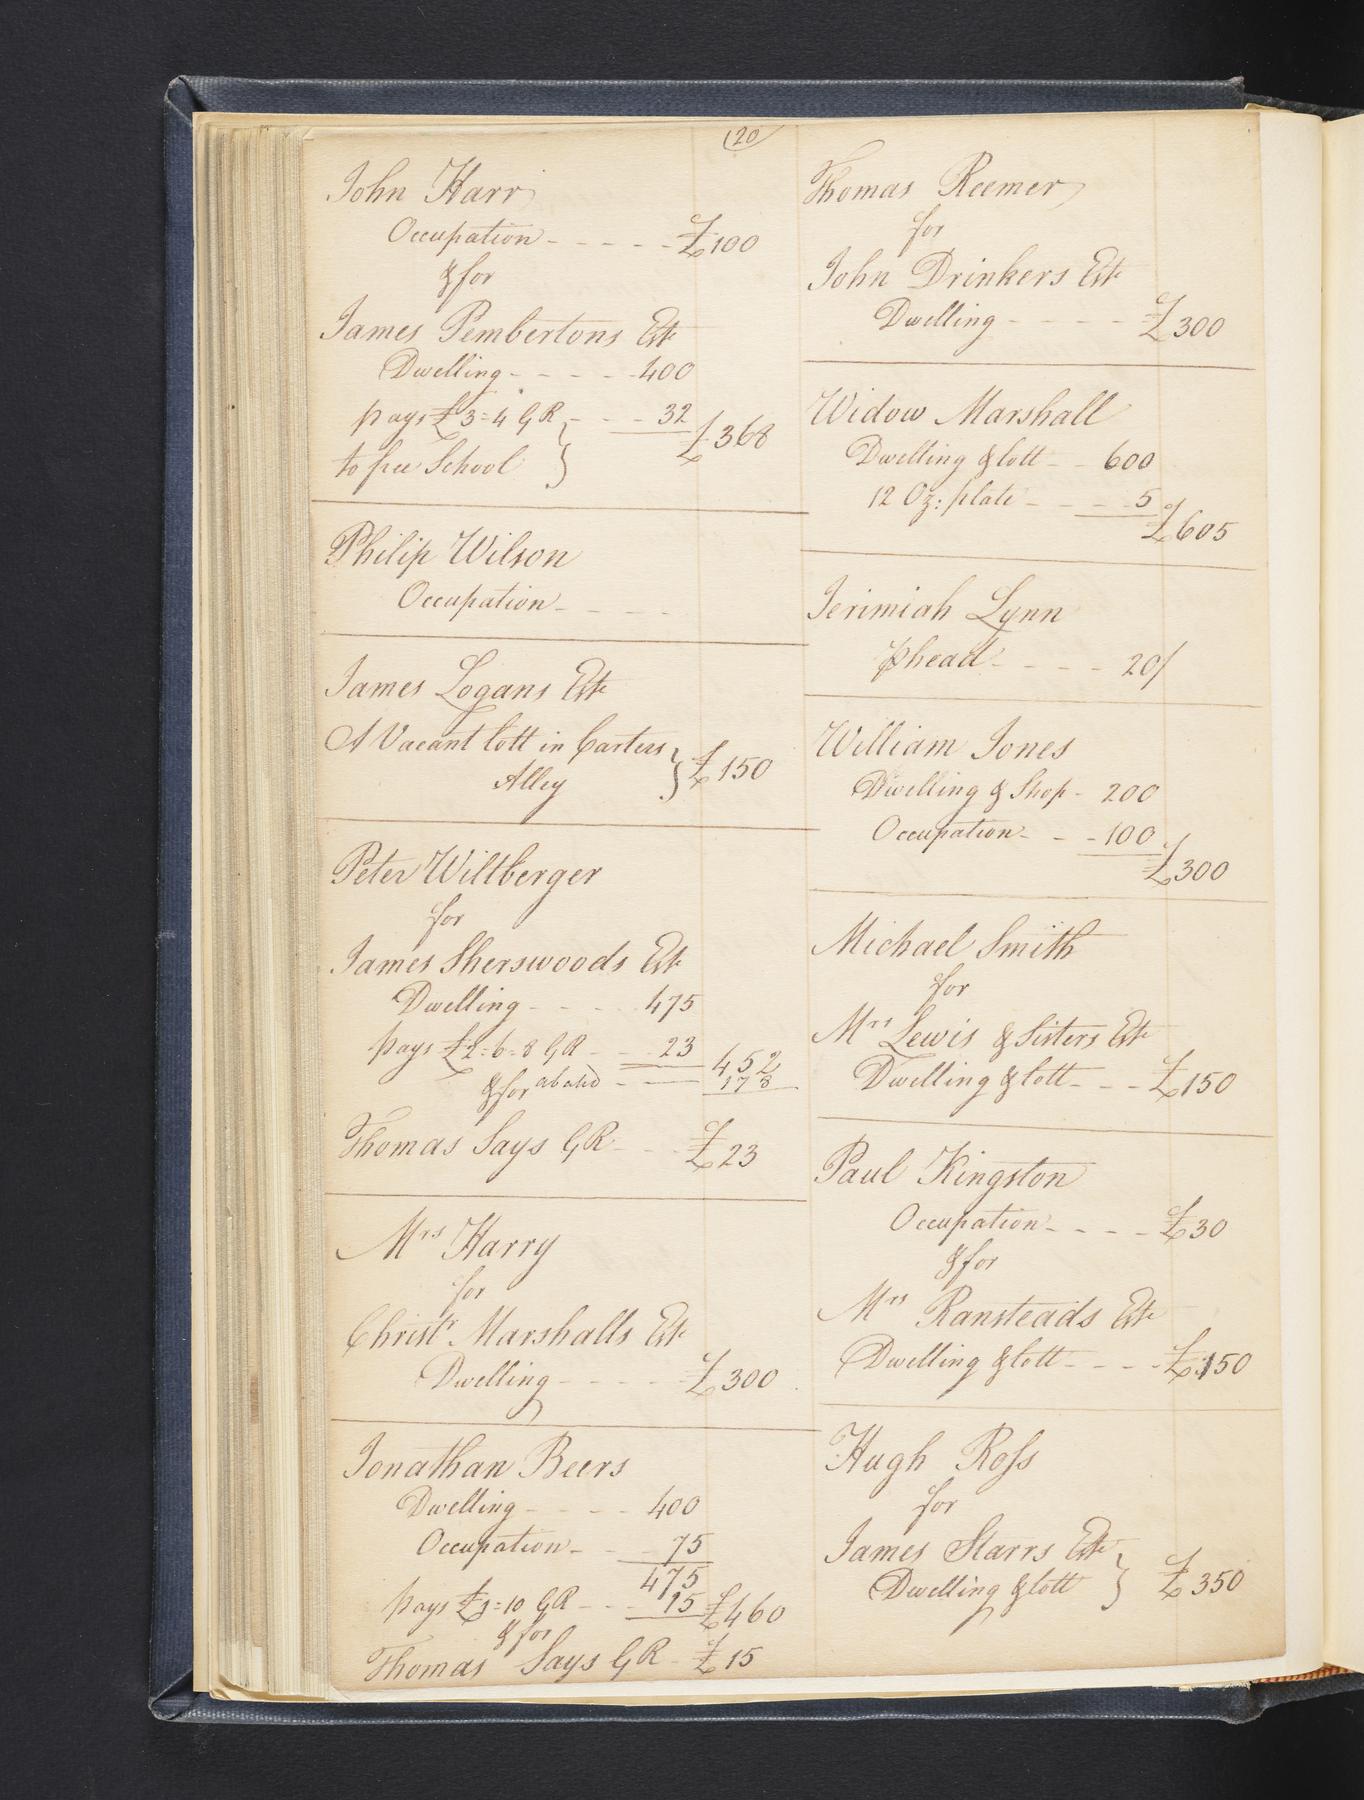 (20)
John Harr
Occupation - - - - - £100
& for
James Pembertons Este
Dwelling - - - - - 400
pays £3=4 GR - - - 32 £368
to free School
Philip Wilson
Occupation - - - -
James Logans Este
A Vacant lott in Carters
Alley } £150
Peter Wiltberger
for
James Sherswoods Este
Dwelling - - - - 475
pays £2=6=8 GR - - - 23 452
& for abated - - 178
Thomas Says GR - - - £23
Mrs Harry
for
Christr Marshalls Este
Dwelling - - - - - £300
Jonathan Beers
Dwelling - - - - 400
Occupation - - 75
475
pays £1=10 GR - - - 15 £460
& for
Thomas Says GR - £15
Thomas Reemer
for
John Drinkers Este
Dwelling - - - - - £300
Widow Marshall
Dwelling & lott - - 600
12 Oz: plate - - - - 5
£605
Jerimiah Lynn
⅌ head - - - - 20/
William Jones
Dwelling & Shop - 200
Occupation - - - 100
£300
Michael Smith
for
Mrs Lewis & Sisters Este
Dwelling & lott - - - £150
Paul Kingston
Occupation - - - - £30
& for
Mrs Ransteads Este
Dwelling & lott - - - - £150
Hugh Ross
for
James Starrs Este
Dwelling & lott } £350